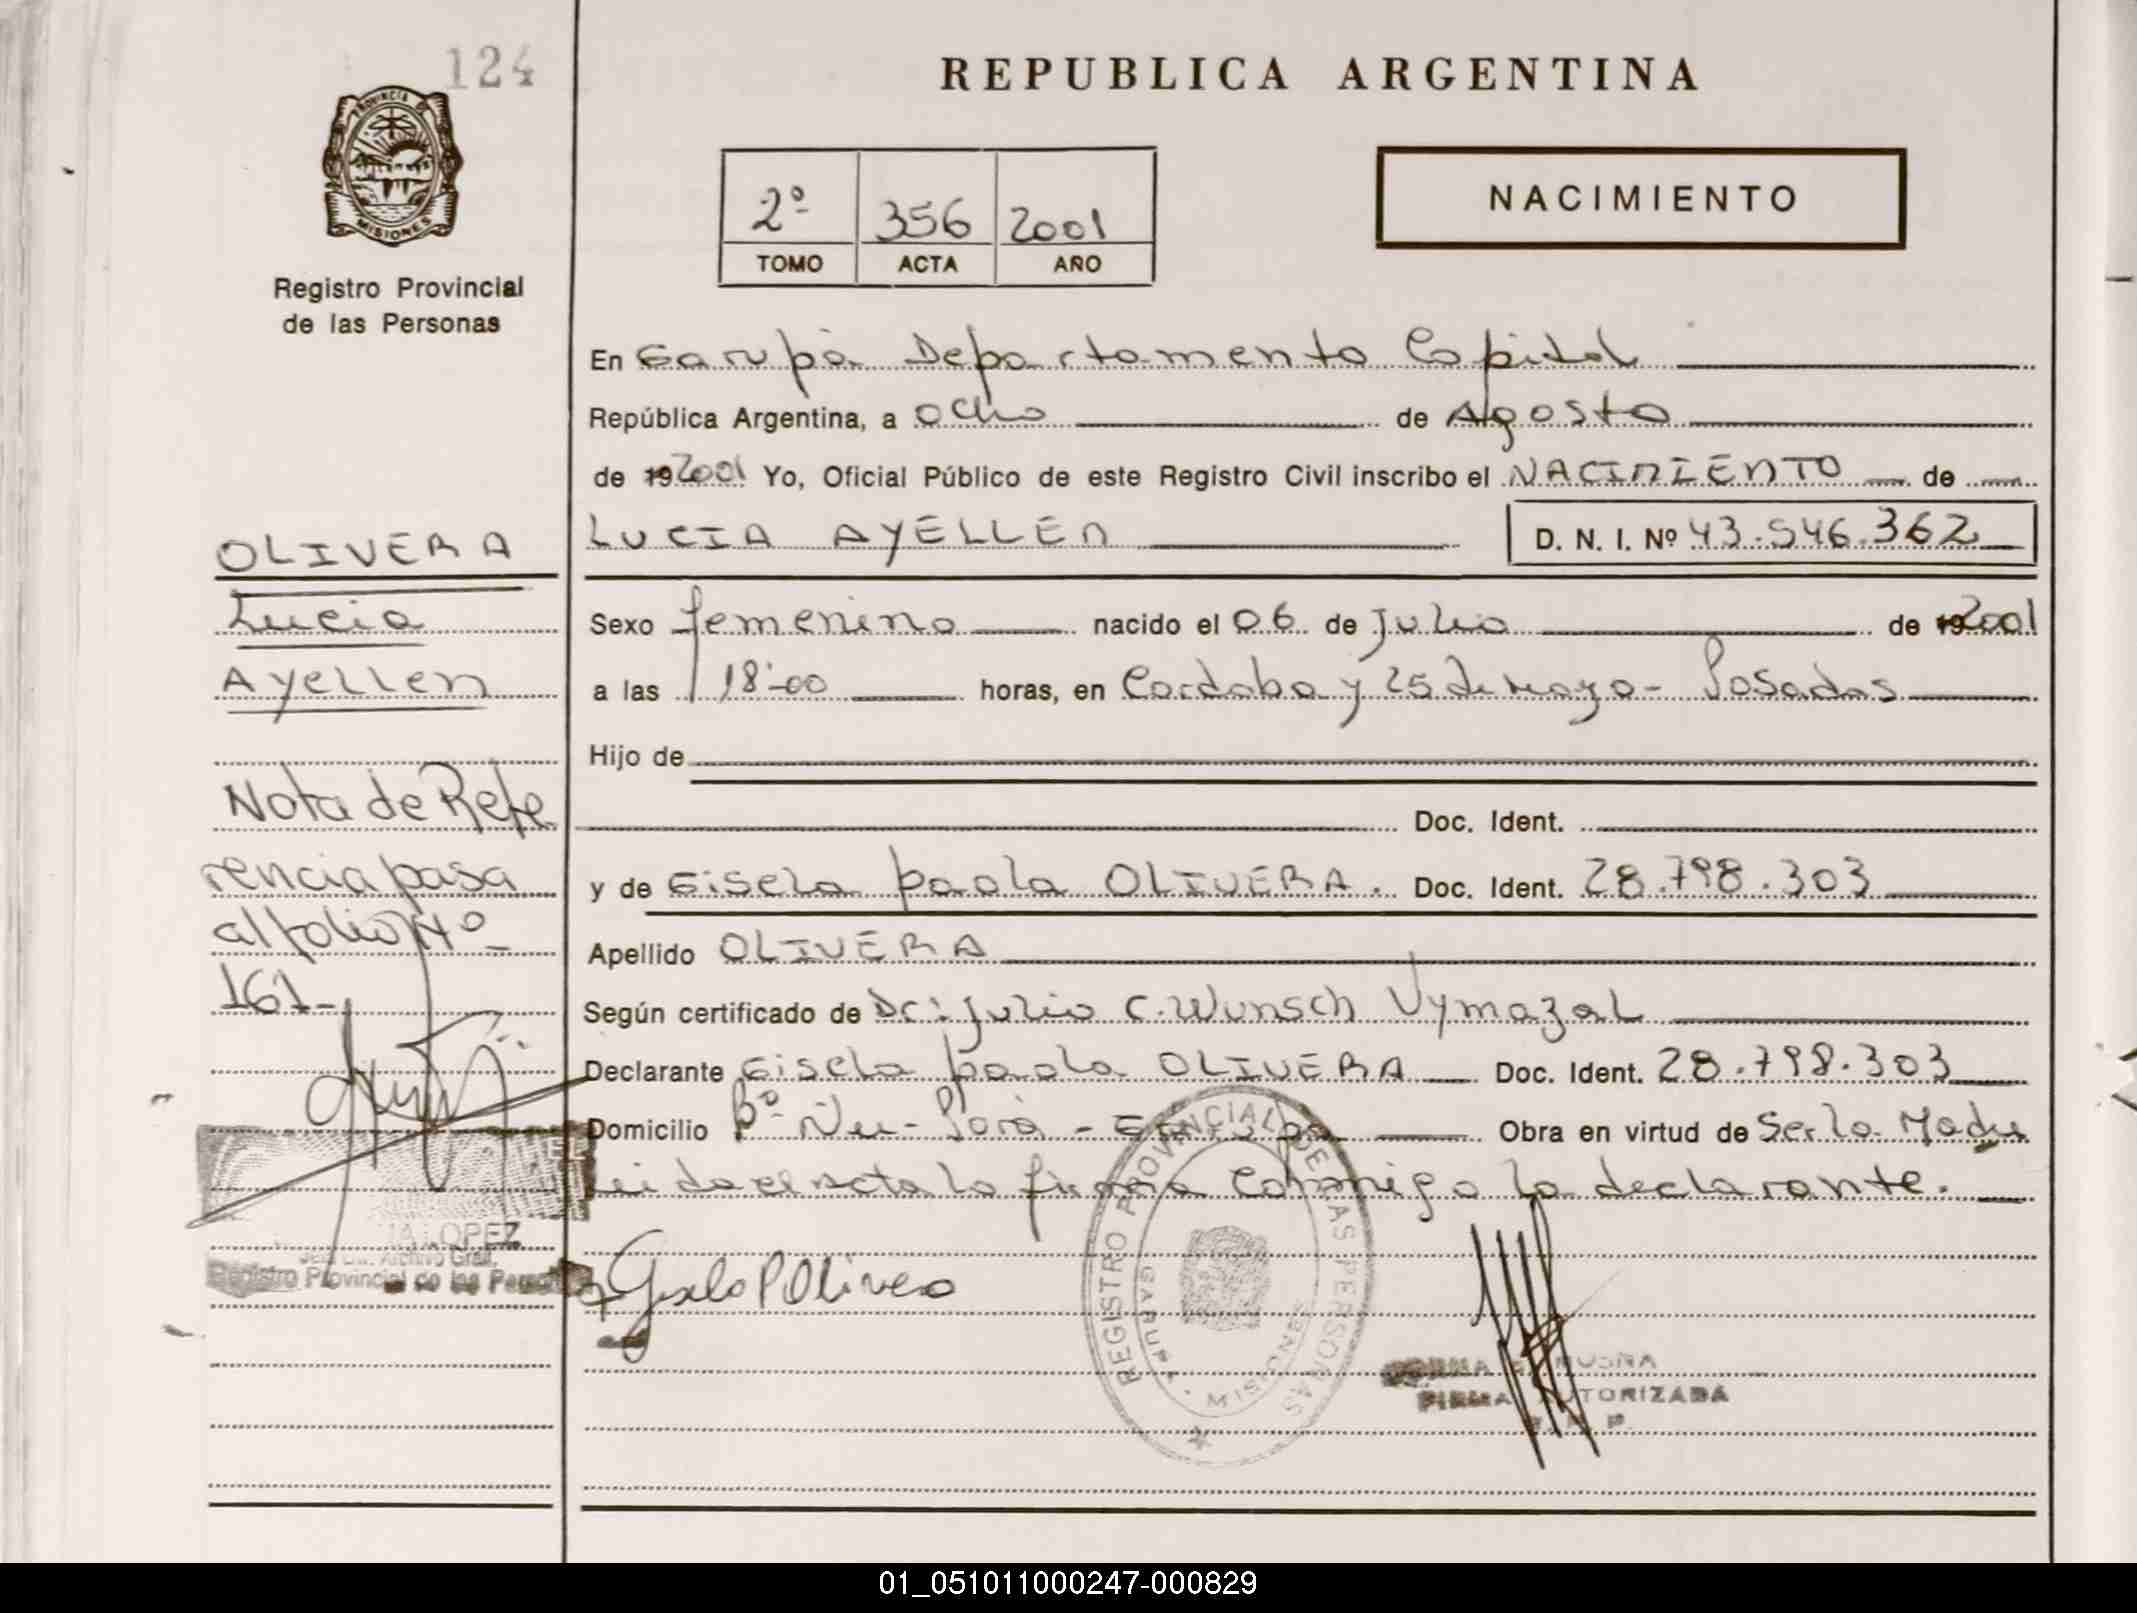 124
REPUBLICA ARGENTINA
PROVINCIA DE
MISIONES
Registro Provincial
de las Personas
2º 356 2001
TOMO ACTA AÑO
NACIMIENTO
En Garupá Departamento Capital
República Argentina, a ocho de Agosto
de 192001 Yo, Oficial Público de este Registro Civil inscribo el NACIMIENTO de
OLIVERA
LUCIA AYELLEN D. N. I. Nº 43.546.362
Lucia
Sexo femenino nacido el 06 de Julio de 192001
Ayellen
a las 18-00 horas, en Cordoba y 25 de Mayo - Posadas
Hijo de
Nota de Refe
Doc. Ident.
rencia pasa
y de Gisela paola OLIVERA. Doc. Ident. 28.798.303
al folio Nº
Apellido OLIVERA
161-
Según certificado de Dr: Julio C. Wunsch Vymazal
Declarante Gisela paola OLIVERA Doc. Ident. 28.798.303
Domicilio Bº Ñu - Porá - Garupá Obra en virtud de Ser la Madre
Leida el acta la firma Conmigo la declarante.
LOPEZ
Archivo Gral.
Registro Provincial de las Personas
Gisela P Olivera
REGISTRO PROVINCIAL DE LAS PERSONAS
GARUPA - MISIONES
FIRMA AUTORIZADA
01_051011000247-000829